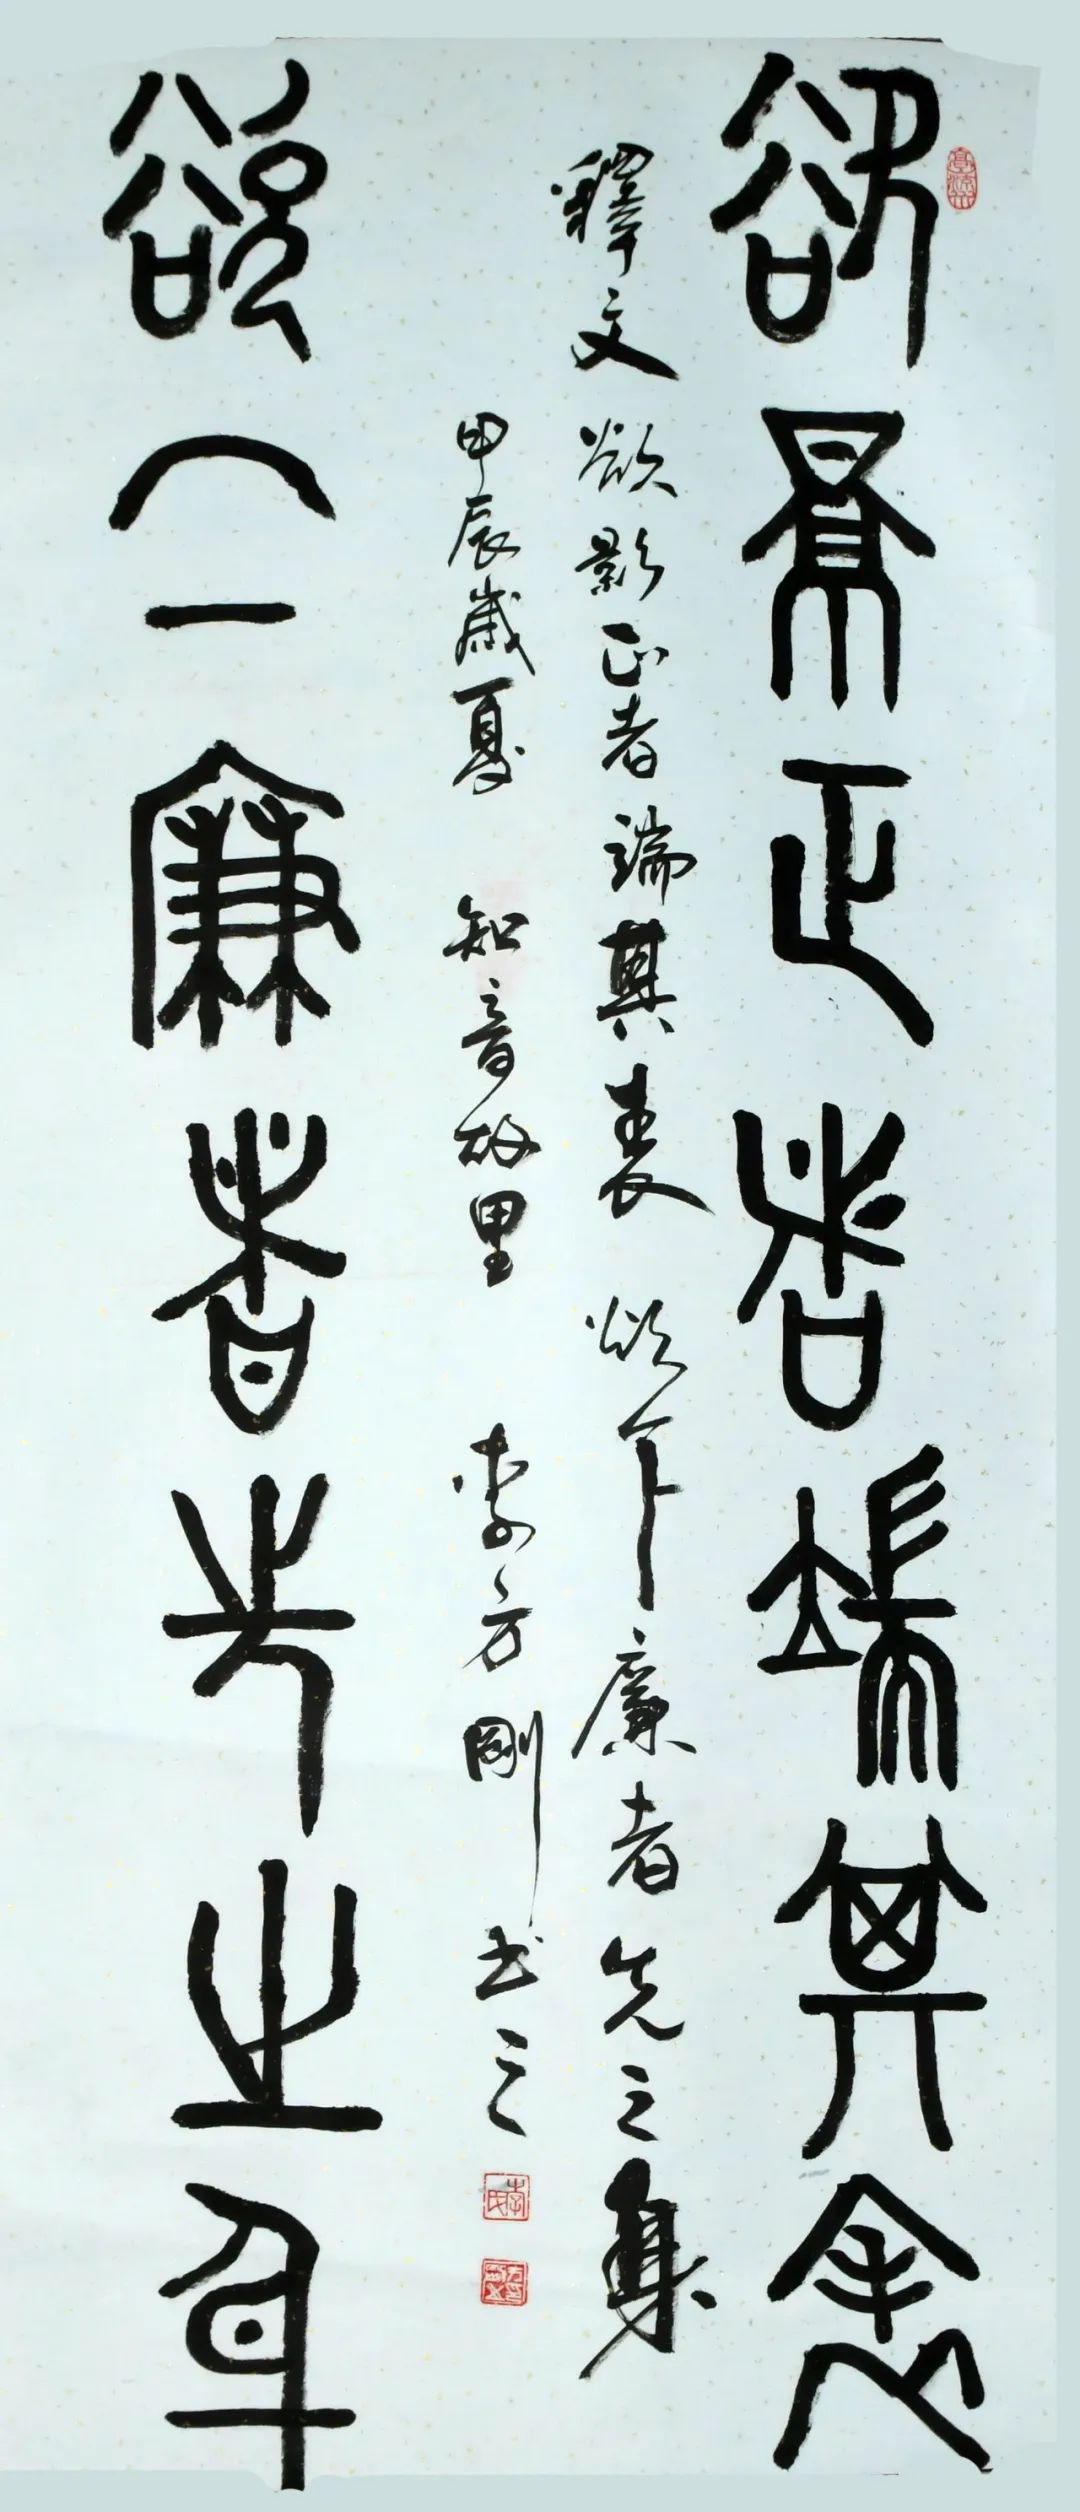 欲景正者端其表
欲下廉者先之身
釋文 欲影正者端其表 欲下廉者先之身
甲辰歲夏 知音故里 李方剛书之